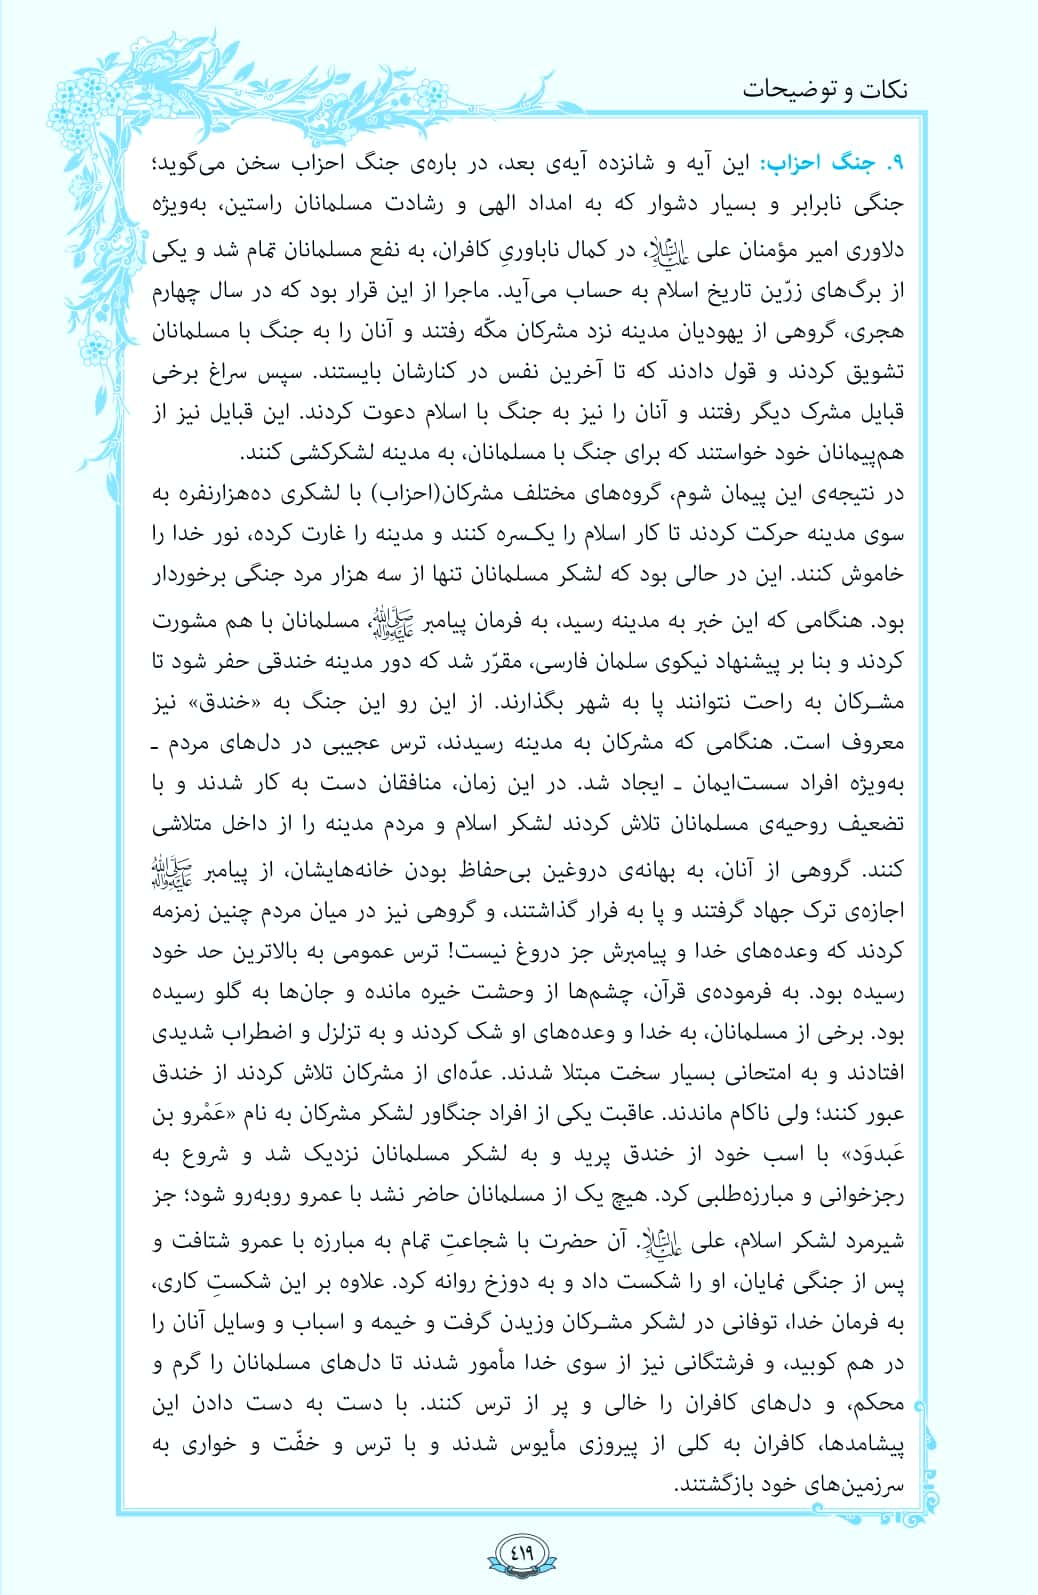 نکات و توضیحات
۹. جنگ احزاب: این آیه و شانزده آیه‌ی بعد، در باره‌ی جنگ احزاب سخن می‌گوید؛
جنگی نابرابر و بسیار دشوار که به امداد الهی و رشادت مسلمانان راستین، به‌ویژه
دلاوری امیر مؤمنان علی علیه‌السلام، در کمال ناباوریِ کافران، به نفع مسلمانان تمام شد و یکی
از برگ‌های زرّین تاریخ اسلام به حساب می‌آید. ماجرا از این قرار بود که در سال چهارم
هجری، گروهی از یهودیان مدینه نزد مشرکان مکّه رفتند و آنان را به جنگ با مسلمانان
تشویق کردند و قول دادند که تا آخرین نفس در کنارشان بایستند. سپس سراغ برخی
قبایل مشرک دیگر رفتند و آنان را نیز به جنگ با اسلام دعوت کردند. این قبایل نیز از
هم‌پیمانان خود خواستند که برای جنگ با مسلمانان، به مدینه لشکرکشی کنند.
در نتیجه‌ی این پیمان شوم، گروه‌های مختلف مشرکان(احزاب) با لشکری ده‌هزارنفره به
سوی مدینه حرکت کردند تا کار اسلام را یکسره کنند و مدینه را غارت کرده، نور خدا را
خاموش کنند. این در حالی بود که لشکر مسلمانان تنها از سه هزار مرد جنگی برخوردار
بود. هنگامی که این خبر به مدینه رسید، به فرمان پیامبر صلی‌الله‌علیه‌وآله، مسلمانان با هم مشورت
کردند و بنا بر پیشنهاد نیکوی سلمان فارسی، مقرّر شد که دور مدینه خندقی حفر شود تا
مشرکان به راحت نتوانند پا به شهر بگذارند. از این رو این جنگ به «خندق» نیز
معروف است. هنگامی که مشرکان به مدینه رسیدند، ترس عجیبی در دل‌های مردم ـ
به‌ویژه افراد سست‌ایمان ـ ایجاد شد. در این زمان، منافقان دست به کار شدند و با
تضعیف روحیه‌ی مسلمانان تلاش کردند لشکر اسلام و مردم مدینه را از داخل متلاشی
کنند. گروهی از آنان، به بهانه‌ی دروغین بی‌حفاظ بودن خانه‌هایشان، از پیامبر صلی‌الله‌علیه‌وآله
اجازه‌ی ترک جهاد گرفتند و پا به فرار گذاشتند، و گروهی نیز در میان مردم چنین زمزمه
کردند که وعده‌های خدا و پیامبرش جز دروغ نیست! ترس عمومی به بالاترین حد خود
رسیده بود. به فرموده‌ی قرآن، چشم‌ها از وحشت خیره مانده و جان‌ها به گلو رسیده
بود. برخی از مسلمانان، به خدا و وعده‌های او شک کردند و به تزلزل و اضطراب شدیدی
افتادند و به امتحانی بسیار سخت مبتلا شدند. عدّه‌ای از مشرکان تلاش کردند از خندق
عبور کنند؛ ولی ناکام ماندند. عاقبت یکی از افراد جنگاور لشکر مشرکان به نام «عَمْرو بن
عَبدوَد» با اسب خود از خندق پرید و به لشکر مسلمانان نزدیک شد و شروع به
رجزخوانی و مبارزه‌طلبی کرد. هیچ یک از مسلمانان حاضر نشد با عمرو روبه‌رو شود؛ جز
شیرمرد لشکر اسلام، علی علیه‌السلام. آن حضرت با شجاعتِ تمام به مبارزه با عمرو شتافت و
پس از جنگی نمایان، او را شکست داد و به دوزخ روانه کرد. علاوه بر این شکستِ کاری،
به فرمان خدا، توفانی در لشکر مشرکان وزیدن گرفت و خیمه و اسباب و وسایل آنان را
در هم کوبید، و فرشتگانی نیز از سوی خدا مأمور شدند تا دل‌های مسلمانان را گرم و
محکم، و دل‌های کافران را خالی و پر از ترس کنند. با دست به دست دادن این
پیشامدها، کافران به کلی از پیروزی مأیوس شدند و با ترس و خفّت و خواری به
سرزمین‌های خود بازگشتند.
٤١٩